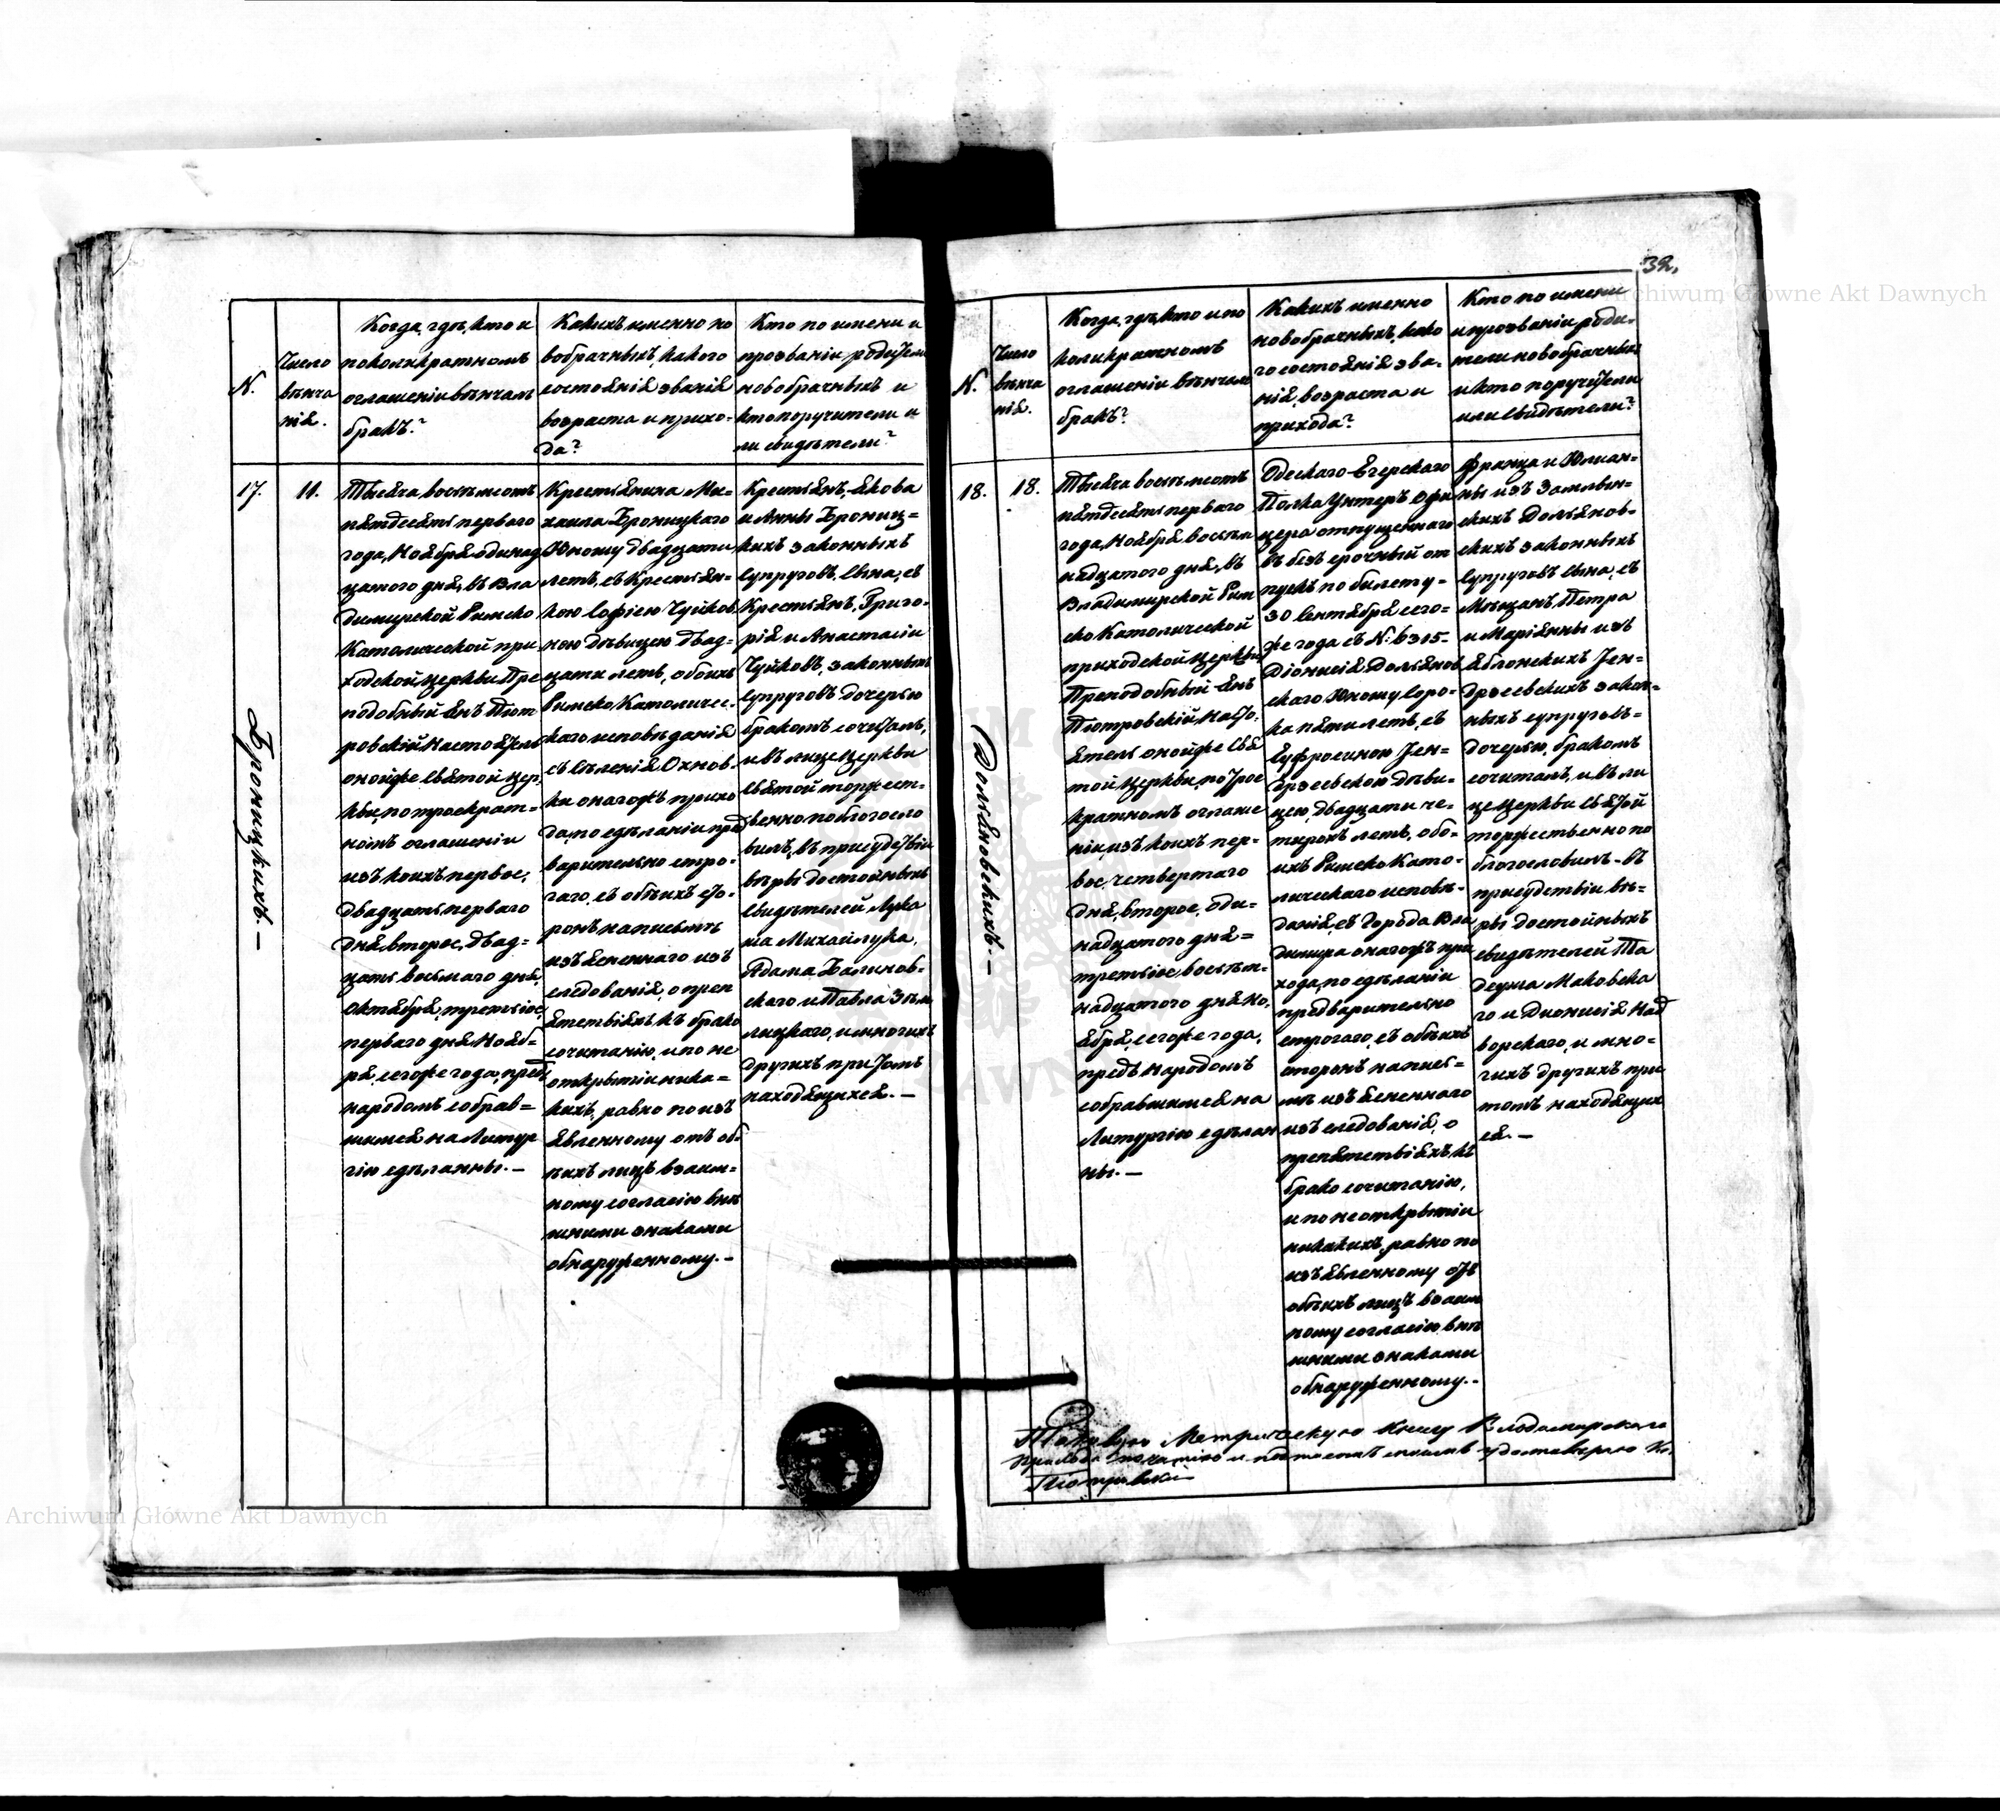 32.
N.
Число
вѣнча
нія.
Когда, гдѣ, кто и
по коликратномъ
оглашеніи вѣнчалъ
бракъ?
Какихъ именно но
вобрачныхъ, какого
состоянія званія
возраста и прихо-
да?
Кто по имени и
прозваніи родители
новобрачныхъ и
кто поручители и
ли свидѣтели?
17.
11.
Броницкихъ.—
Тысяча восемьсотъ
пятдесятъ перваго
года, Ноября одинад
цатого дня, въ Вла
димирской Римско
Католической при
ходской церкви Пре
подобный Янъ Піот
ровскій Настоятель
онойже Святой цер
кви, по троекрат-
номъ оглашеніи
изъ коихъ первое,
двадцать перваго
дня, второе, двад-
цать восьмаго дня,
Октября, третьіое,
перваго дня Нояб-
ря, сегоже года, предъ
народомъ собрав=
шимся на Литур
гію сдѣланны.—
Крестьянина Ми-
хаила Броницкаго
Юношу двадцати
летъ, съ Крестьян-
кою Софіею Чуйков
ною дѣвицею двад-
цати летъ, обоихъ
Римско Католичес-
каго исповѣданія
съ Селенія Охнов-
ки оногожъ прихо
да, по сдѣланіи пред
варительно стро-
гаго, съ обѣихъ сто-
ронъ на письмѣ
изъясненнаго изъ
следованія, о преп
ятствіяхъ къ брако
сочитанію, и по не
открытіи ника=
кихъ, равно по изъ
явленному отъ об-
ѣихъ лицъ взаим=
ному согласію внѣ
шними знаками
обнаруженному.—
Крестьянъ, Якова
и Анны Брониц=
кихъ законныхъ
Супруговъ, Сына, съ
Крестьянъ, Григо-
рія и Анастасіи
Чуйковъ, законныхъ
Супруговъ дочерью
бракомъ сочиталъ,
и въ лице церкви
Святой торжест-
венно поблогосло
вилъ, въ присудствіи
вѣры достойныхъ
Свидѣтелей Лука
ша Михайлука,
Адама Балинов-
скаго и Павла
лицкаго, и многихъ
другихъ при томъ
находящихся.—
N.
Число
вѣнча
нія.
Когда, гдѣ, кто и по
коликратномъ
оглашеніи вѣнчалъ
бракъ?
Какихъ именно
новобрачныхъ, како
го состоянія зва-
нія, возраста и
прихода?
Кто по имени
и прозваніи роди-
тели новобрачныхъ
и кто поручители
или свидѣтели?
18.
18.
Доляновскихъ.—
Тысяча восемьсотъ
пятдесятъ перваго
года, Ноября восьм
надцатого дня, въ
Владимирской Рим
ско Католической
приходской церкви,
Преподобный Янъ
Піотровскій, Насто-
ятель онойже Свя
той церкви, по трое
кратномъ оглаше
ніи, изъ коихъ пер-
вое, четвертаго
дня, второе, оди-
надцатого дня=
третьіое, восьм-
надцатого дня Но-
ября, сегоже года,
предъ народомъ
собравшимся на
Литургію сдѣлан
ны.—
Одескаго Егерскаго
Полка Унтеръ Офи
цера отпущеннаго
въ безъ срочный от
пускъ по билету-
30 Сентября сего=
же года съ N: 6315-
Діонисія Долянов
скаго Юношу соро-
ка пяти летъ, съ
Еуфросиною Јен=
дрзеевскою дѣви-
цею, двадцати че-
тырохъ летъ, обо-
ихъ Римско Като-
лическаго исповѣ-
данія, съ Города Вла
димира оногожъ при
хода, по сдѣланіи
предварительно
строгаго, съ обѣихъ
сторонъ на пись-
мѣ изъясненнаго
изъ следованія, о
препятствіяхъ къ
брако сочитанію,
и по не открытіи
никакихъ, равно по
изъявленному отъ
обѣихъ лицъ взаим
ному согласію внѣ
шними знаками
обнаруженному.-
Франца и Юлиан-
ны изъ
скихъ Долянов-
скихъ законныхъ
Супруговъ Сына, съ
Мѣщанъ, Петра
и Маріянны изъ
Яблонскихъ Јен=
дрзеевскихъ закон-
ныхъ супруговъ=
дочерью, бракомъ
сочиталъ, и въ ли
це церкви Святой
торжественно по
блогословилъ - въ
присудствіи вѣ=
ры достойныхъ
свидѣтелей Та
деуша Маковска
го и Дионисія Над
ворскаго, и мно=
гихъ другихъ при
томъ находящих
ся.—
Таковую Метрическую Книгу Владимирскаго
Прихода
Піотровскій
Archiwum Główne Akt Dawnych
Archiwum Główne Akt Dawnych